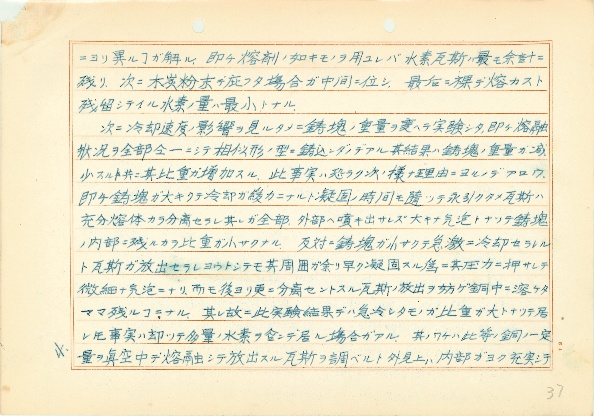 ニヨリ異ルコガ解ル. 即チ熔剤ノ如キモノヲ用ユレバ水素瓦斯ハ最モ余計ニ
残リ. 次ニ木炭粉末デ庇フタ場合ガ中間ニ位シ. 最后ニ裸デ熔カスト
残留シテイル水素ノ量ハ最小トナル.
次ニ冷却速度ノ影響ヲ見ルタメニ鋳塊ノ重量ヲ変ヘテ実験シタ. 即チ熔融
状況ヲ全部仝一ニシテ相似形ノ型ニ鋳込ンダノデアル. 其結果ハ鋳塊ノ重量ガ減
少スルト共ニ其比重ガ増加スル. 此事実ハ恐ラク次ノ様ナ理由ニヨルノデアロウ.
即チ鋳塊ガ大キクテ冷却ガ緩カニナルト凝固ノ時間モ随ツテ永引クタメ瓦斯ハ
充分熔体カラ分離セラレ其レガ全部外部ヘ噴キ出サレズ大キナ気泡トナツテ鋳塊
ノ内部ニ残ルカラ比重ガ小サクナル. 反対ニ鋳塊ガ小サクテ急激ニ冷却セラレル
ト瓦斯ガ放出セラレヨウトシテモ其周囲ガ余リ早ク凝固スル為ニ其圧力ニ押サレテ
微細ナ気泡ニナリ, 而モ後ヨリ更ニ分離セントスル瓦斯ノ放出ヲ妨ゲ銅中ニ溶ケタ
ママ残ルコニナル. 其レ故ニ此実験結果デハ急冷シタモノガ比重ガ大トナツテ居
レ圧事実ハ却ツテ多量ノ水素ヲ含ンデ居ル場合ガアル. 其ノワケハ此等ノ銅ノ一定
量ヲ真空中デ熔融シテ放出スル瓦斯ヲ調ベルト外見上ハ内部ガヨク充実シテ
37